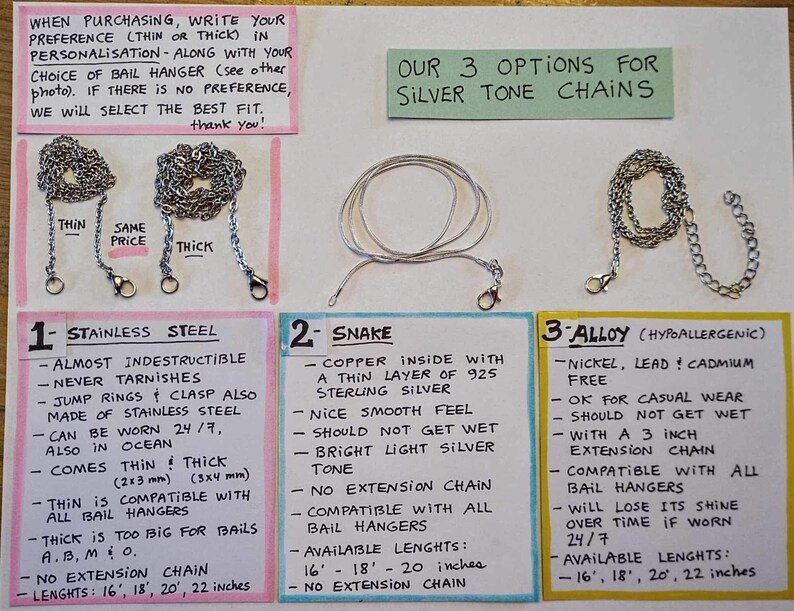 WHEN PURCHASING, WRITE YOUR
PREFERENCE (THIN OR THICK) IN
PERSONALISATION - ALONG WITH YOUR
CHOICE OF BAIL HANGER (see other
photo). IF THERE IS NO PREFERENCE,
WE WILL SELECT THE BEST FIT.
thank you!
OUR 3 OPTIONS FOR
SILVER TONE CHAINS
THIN
SAME
PRICE
THICK
1- STAINLESS STEEL
- ALMOST INDESTRUCTIBLE
- NEVER TARNISHES
- JUMP RINGS & CLASP ALSO
MADE OF STAINLESS STEEL
- CAN BE WORN 24/7,
ALSO IN OCEAN
- COMES THIN & THICK
(2x3 mm) (3x4 mm)
- THIN IS COMPATIBLE WITH
ALL BAIL HANGERS
- THICK IS TOO BIG FOR BAILS
A, B, M & O.
- NO EXTENSION CHAIN
- LENGHTS: 16', 18', 20', 22 inches
2- SNAKE
- COPPER INSIDE WITH
A THIN LAYER OF 925
STERLING SILVER
- NICE SMOOTH FEEL
- SHOULD NOT GET WET
- BRIGHT LIGHT SILVER
TONE
- NO EXTENSION CHAIN
- COMPATIBLE WITH ALL
BAIL HANGERS
- AVAILABLE LENGHTS:
16' - 18' - 20 inches
- NO EXTENSION CHAIN
3- ALLOY (HYPOALLERGENIC)
- NICKEL, LEAD & CADMIUM
FREE
- OK FOR CASUAL WEAR
- SHOULD NOT GET WET
- WITH A 3 INCH
EXTENSION CHAIN
- COMPATIBLE WITH ALL
BAIL HANGERS
- WILL LOSE ITS SHINE
OVER TIME IF WORN
24/7
- AVAILABLE LENGHTS:
- 16', 18', 20', 22 inches